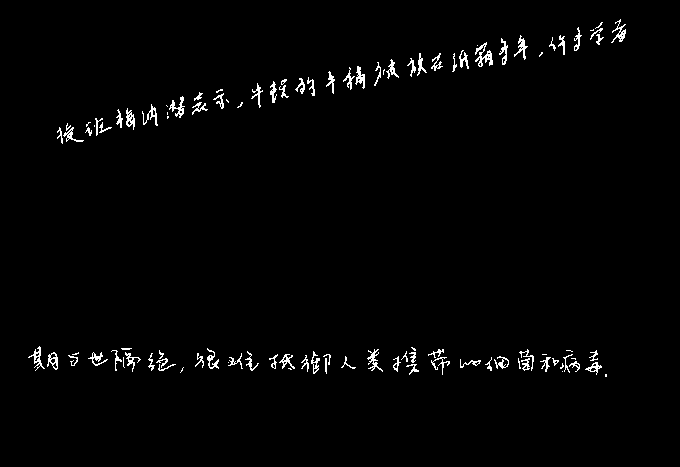 授班梅内潜表示,牛顿的手稿被放在纸箱多年,许多学者
期与世隔绝,很难抵御人类携带的细菌和病毒.